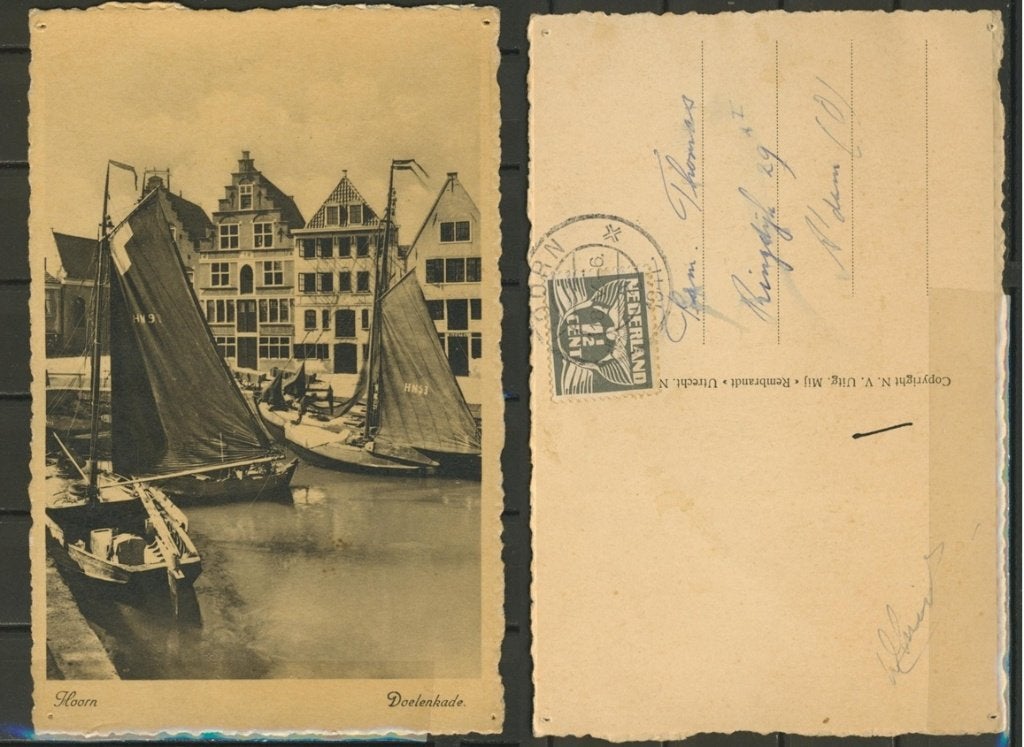 HN 61
HN53
Hoorn
Doelenkade.
HOORN
NEDERLAND
1½
CENT
Fam. Thomas
Ringdijk 29
Copyright N. V. Uitg. Mij « Rembrandt » Utrecht. N